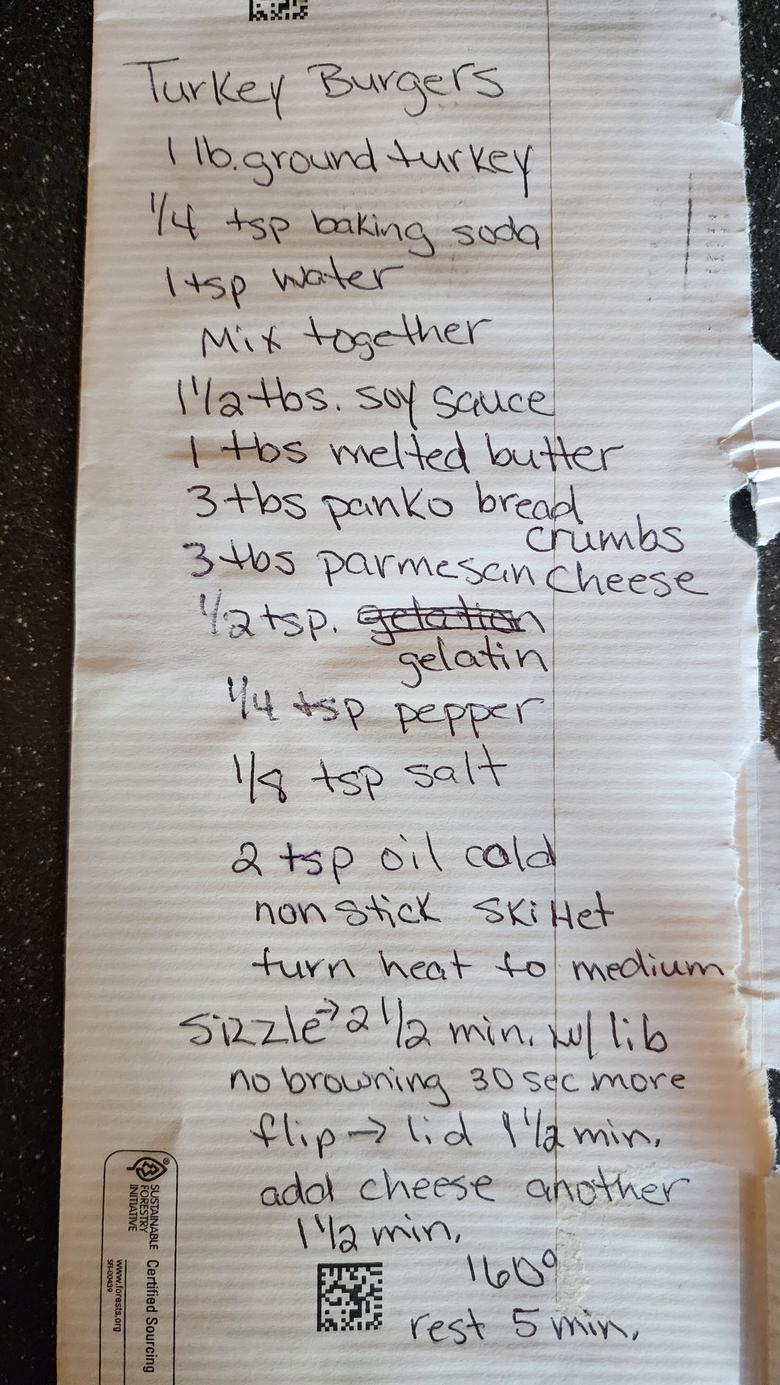 Turkey Burgers
1 lb. ground turkey
1/4 tsp baking soda
1 tsp water
Mix together
1 1/2 tbs. soy sauce
1 tbs melted butter
3 tbs panko bread
crumbs
3 tbs parmesan cheese
1/2 tsp. gelation
gelatin
1/4 tsp pepper
1/8 tsp salt
2 tsp oil cold
non stick skillet
turn heat to medium
Sizzle → 2 1/2 min. w/ lib
no browning 30 sec more
flip → lid 1 1/2 min.
add cheese another
1 1/2 min.
160°
rest 5 min.
SUSTAINABLE
FORESTRY
INITIATIVE
Certified Sourcing
www.forests.org
SFI-00439